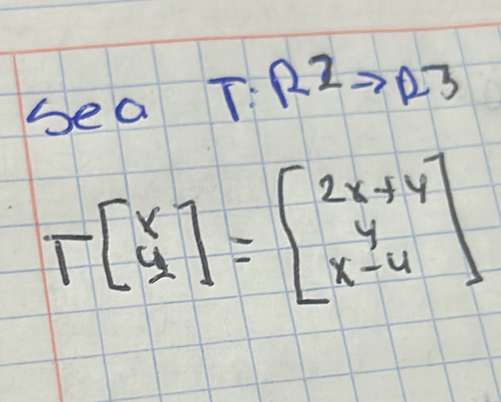 Sea T: R2 → R3
T[x y] = [2x+y
y
x-y]